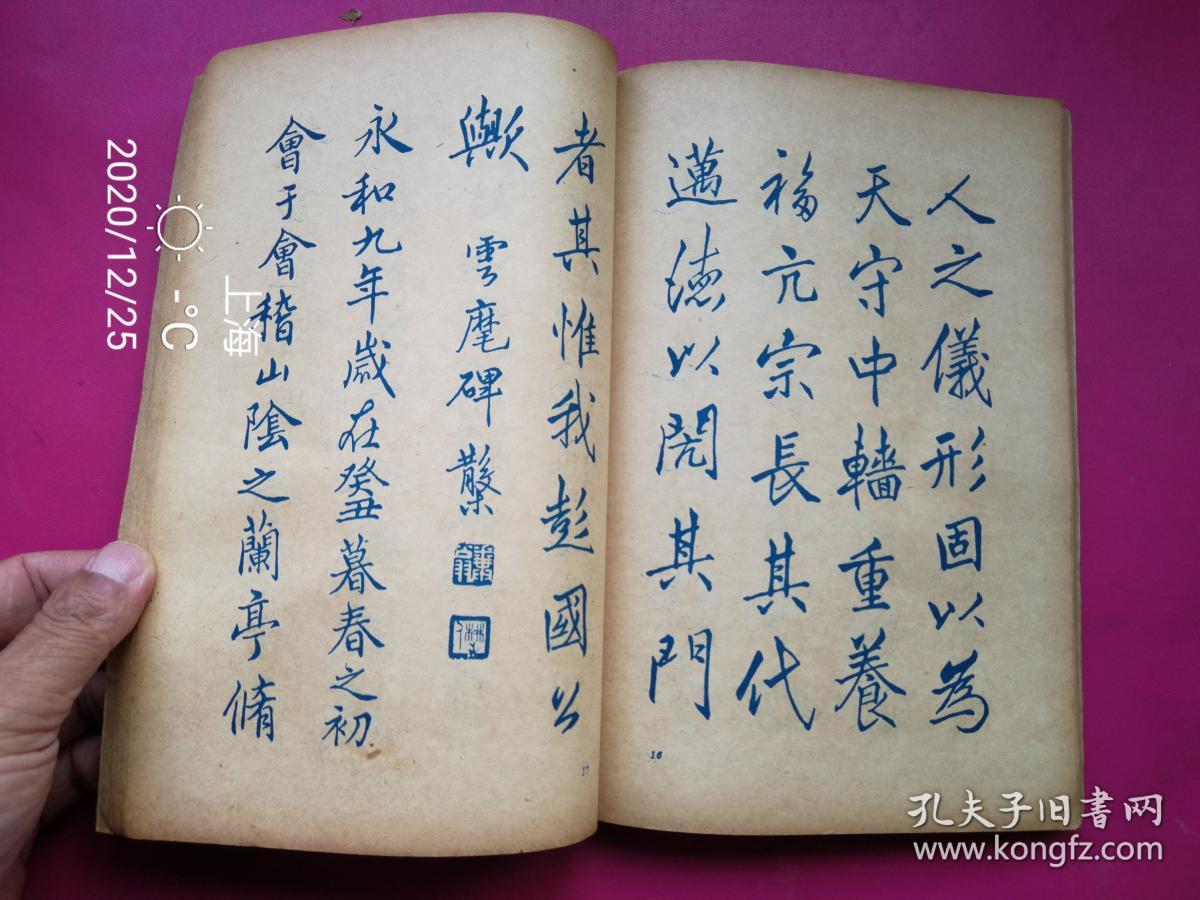 人之儀形固以為
天守中轖重養
福亢宗長其代
邁德以閌其門
者其惟我彭國公
歟 雲麾碑 蘩
永和九年歲在癸丑暮春之初
會于會稽山陰之蘭亭脩
16
17
2020/12/25
-°C
上海
孔夫子旧书网
www.kongfz.com